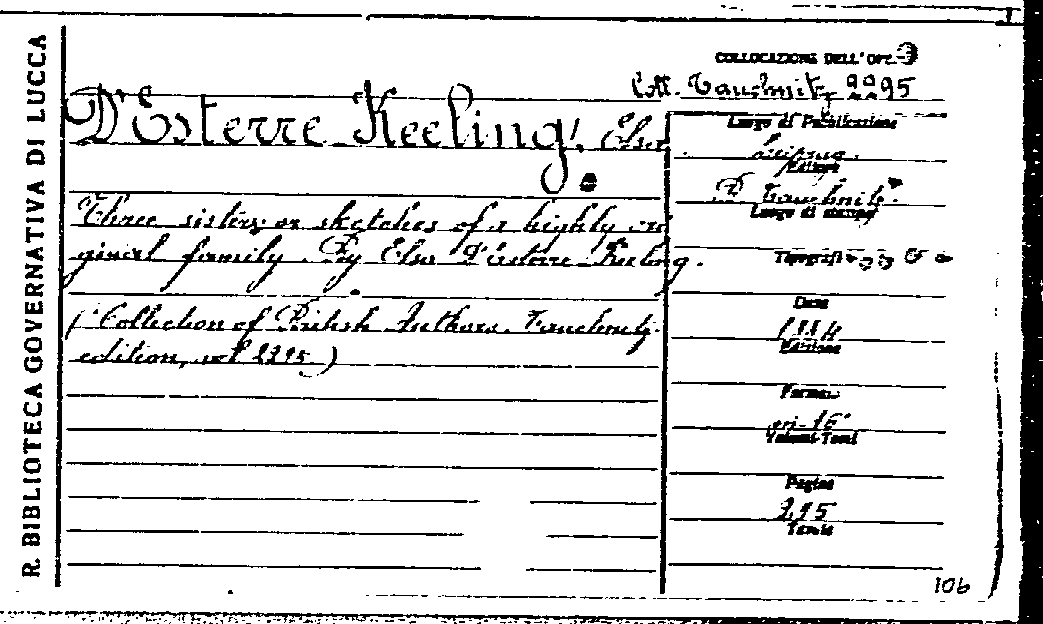 R. BIBLIOTECA GOVERNATIVA DI LUCCA
COLLOCAZIONE DELL'OPE
Coll. Tauchnitz 2295
D'Esterre Keeling, Elsa
Three sisters or sketches of a highly ori
ginal family. By Elsa D'Esterre-Keeling.
(Collection of British Authors. Tauchnitz
edition, vol 2295)
Luogo di Pubblicazione
Leipzig.
Editore
B. Tauchnitz.
Luogo di stampa
Tipografi
Data
1884
Edizione
Formato
in-16°
Volumi-Tomi
Pagine
295
Tavole
106